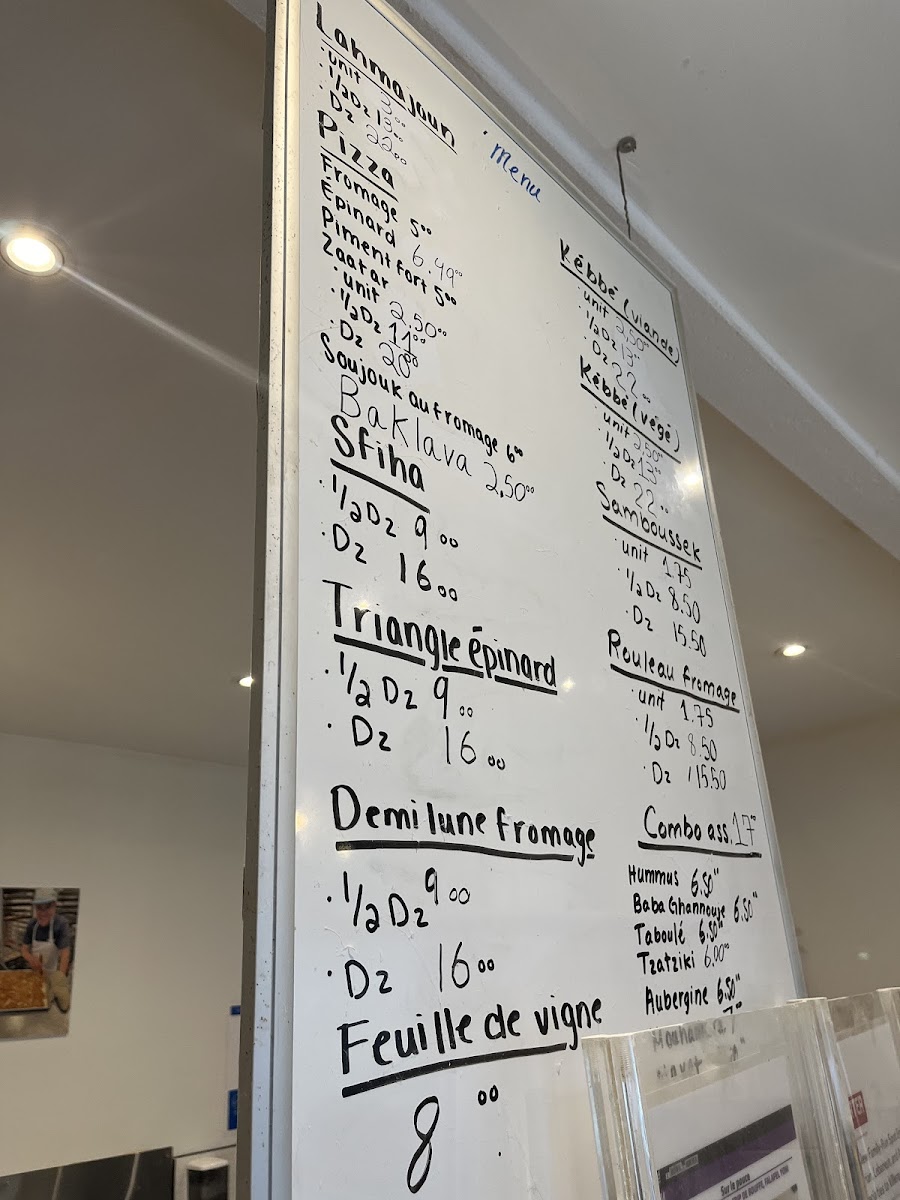 Menu
Lahmajoun
· unit 3.00
· 1/2 Dz 13.00
· Dz 22.00
Pizza
Fromage 5.00
Épinard 6.49.00
Piment fort 5.00
Zaatar
· unit 2.50.00
· 1/2 Dz 11.00
· Dz 20.00
Soujouk au fromage 6.00
Baklava 2,50.00
Sfiha
· 1/2 Dz 9.00
· Dz 16.00
Triangle épinard
· 1/2 Dz 9.00
· Dz 16.00
Demi lune fromage
· 1/2 Dz 9.00
· Dz 16.00
Feuille de vigne
8.00
Kébbé (viande)
· unit 2,50.00
· 1/2 Dz 13.00
· Dz 22.00
Kébbé (végé)
· unit 2,50.00
· 1/2 Dz 13.00
· Dz 22.00
Samboussek
· unit 1.75
· 1/2 Dz 8.50
· Dz 15.50
Rouleau fromage
· unit 1.75
· 1/2 Dz 8.50
· Dz 15.50
Combo ass. 17"
Hummus 6.50"
Baba Ghannouje 6.50"
Taboulé 6.50"
Tzatziki 6.00"
Aubergine 6.50"
Sur le pouce